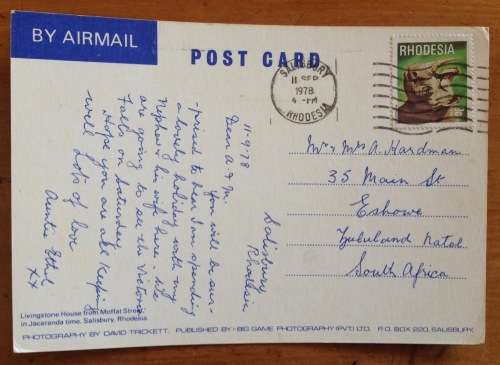 BY AIRMAIL
POST CARD
SALISBURY
11 SEP
1978
4 - PM
RHODESIA
RHODESIA
11-9-78
Salisbury
Rhodesia
Dear A & M.
You will be sur-
-prised to hear I am spending
a lovely holiday with my
Nephew & his wife here. We
are going to see the Victoria
Falls on Saturday.
Hope you are all keeping
well Lots of love
Auntie Ethel
xx
Mr & Mrs A. Hardman
35 Main St
Eshowe
Zululand Natal
South Africa
Livingstone House from Moffat Street,
in Jacaranda time. Salisbury, Rhodesia.
PHOTOGRAPHY BY DAVID TRICKETT. PUBLISHED BY:- BIG GAME PHOTOGRAPHY (PVT) LTD. P.O. BOX 220, SALISBURY.